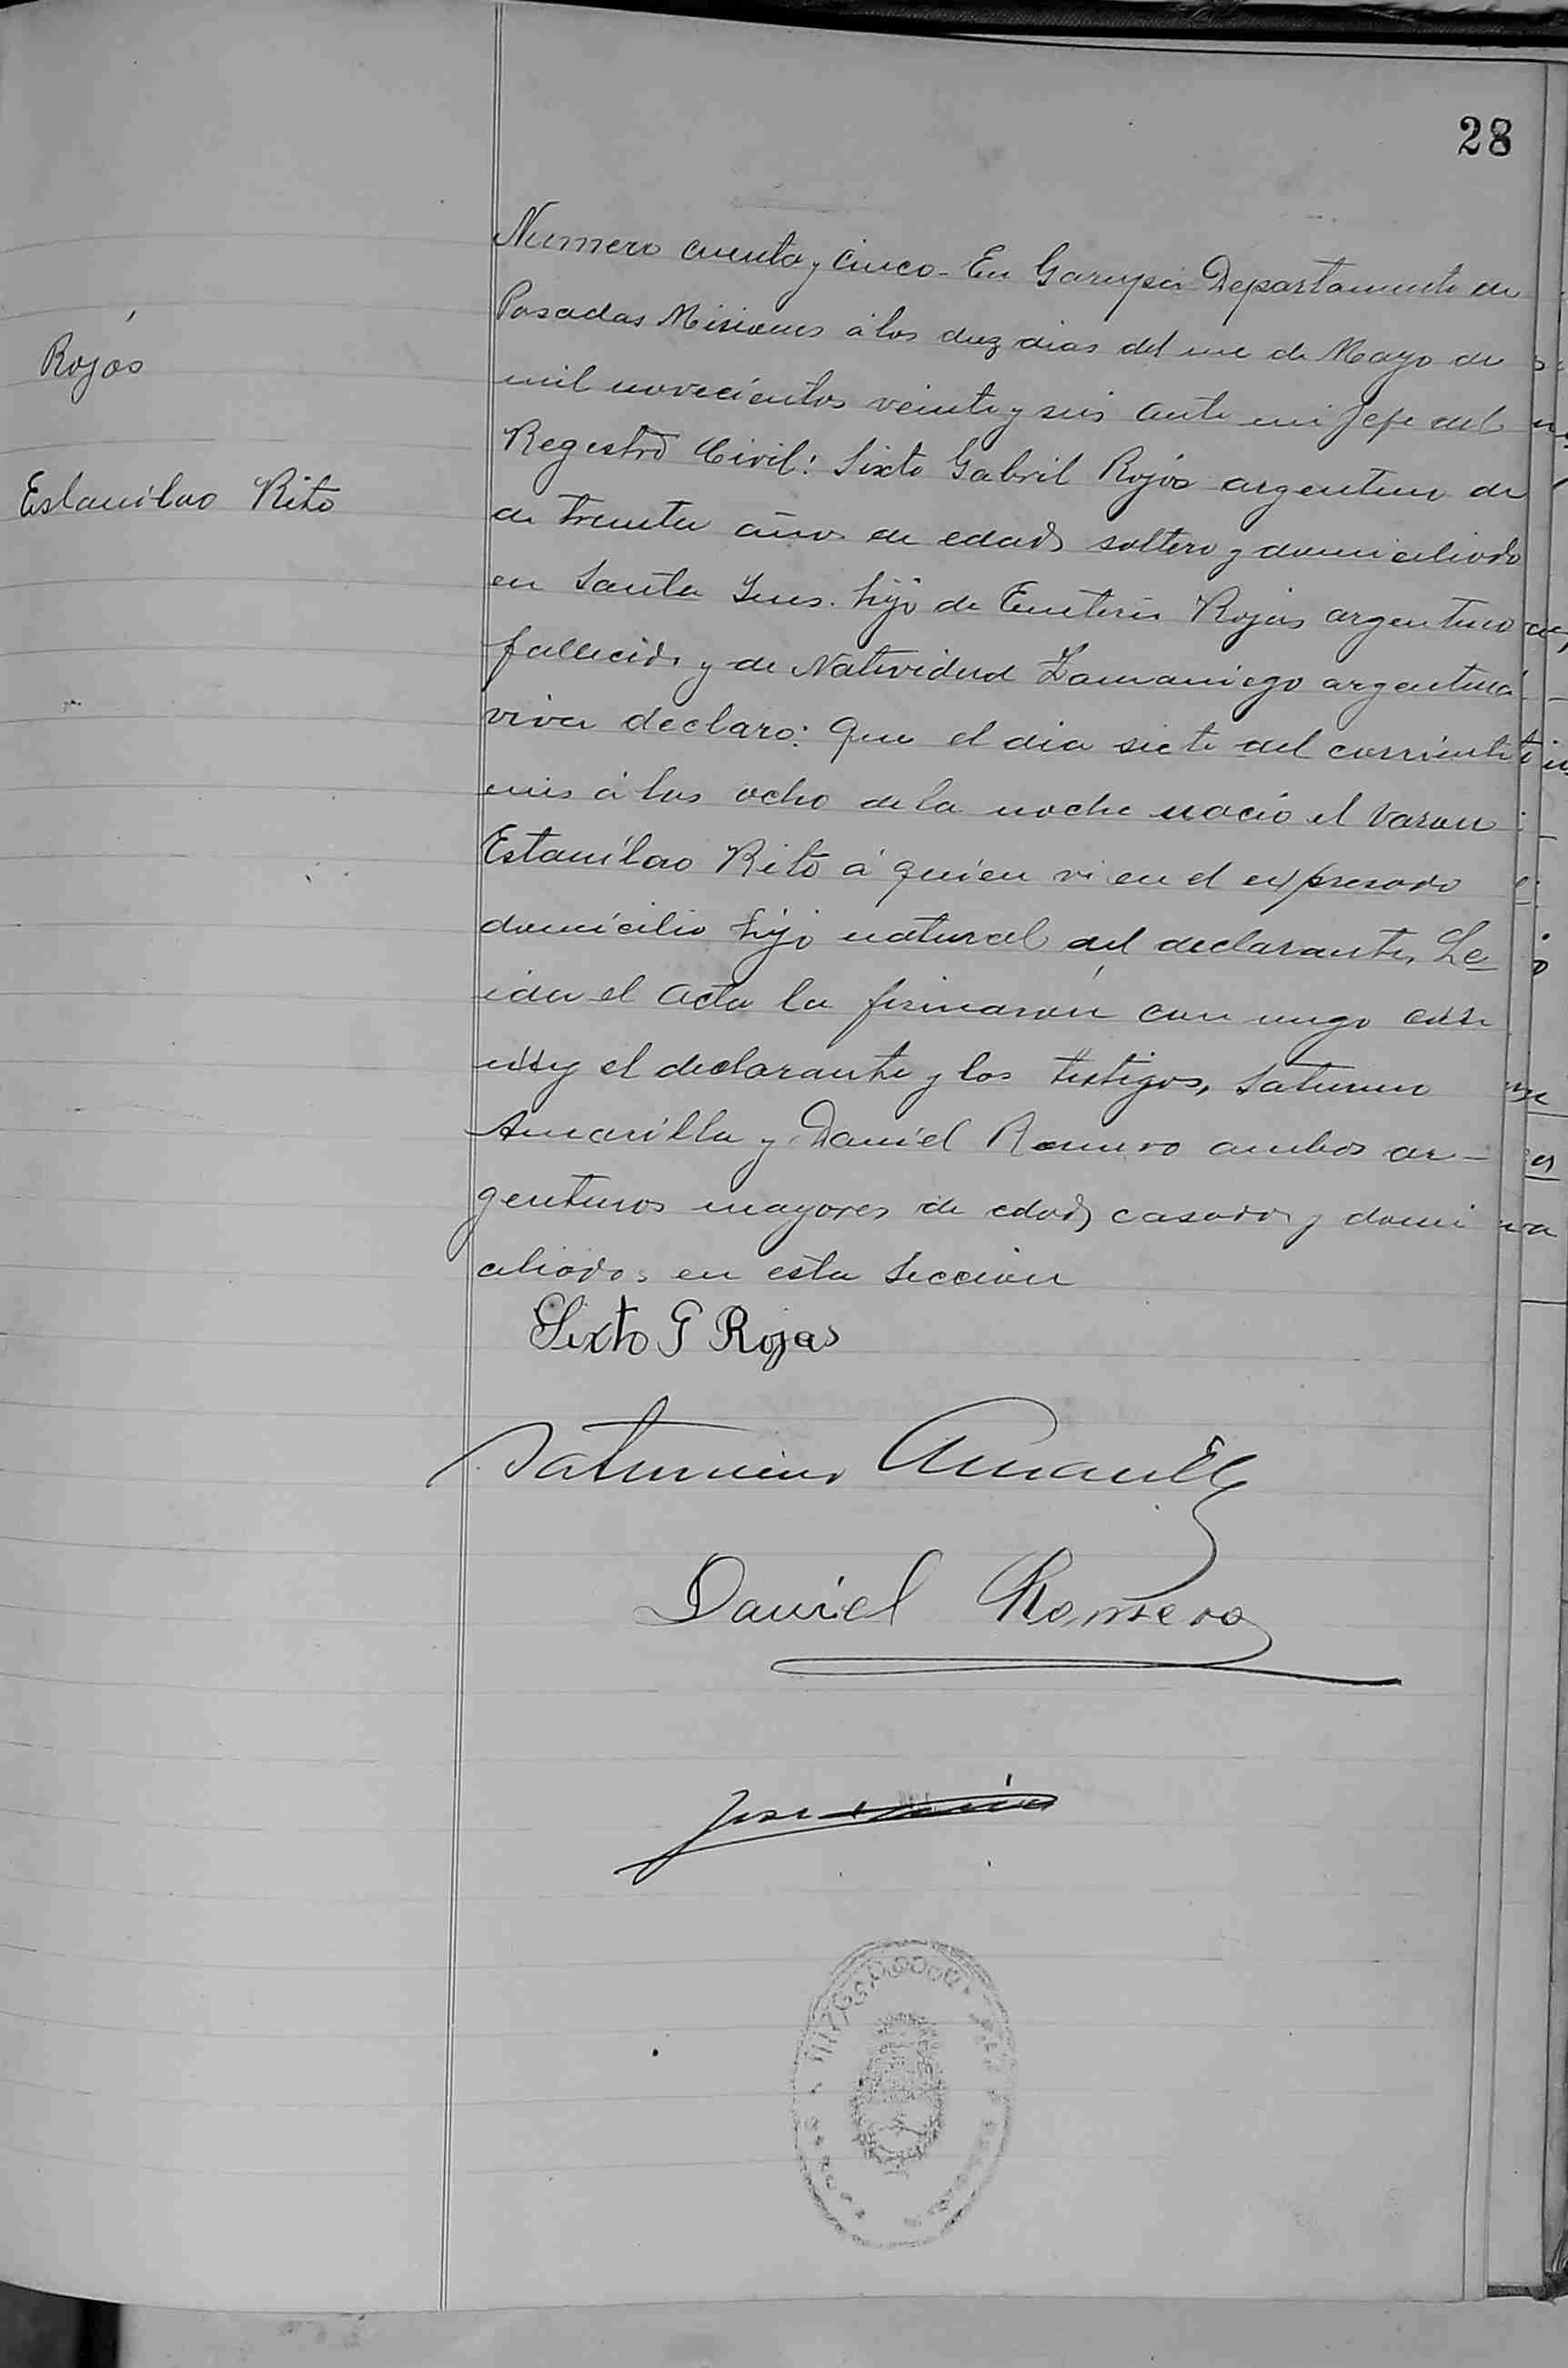 28
Rojas
Estanilao Rito
Numero cuenta y cinco - En Garupá Departamento de
Posadas Misiones á los diez dias del mes de Mayo de
mil novecientos veinte y seis ante mi Jefe del
Registro Civil: Sixto Gabril Rojas argentino de
de treinta años de edad soltero y domiciliado
en Santa Ines. hijo de Emeterio Rojas argentino
fallecido y de Natividad Zamaniego argentina
viva declaro: Que el dia siete del corriente
mes á las ocho de la noche nació el varon
Estanilao Rito á quien vi en el expresado
domicilio hijo natural del declarante. Le
ida el acta la firmarón con migo
el declarante y los testigos, Saturnino
Amarilla y Daniel Romero ambos ar-
gentinos mayores de edad casados y domi
ciliados en esta Seccion
Sixto G Rojas
Saturnino Amarilla
Daniel Romero
Jose